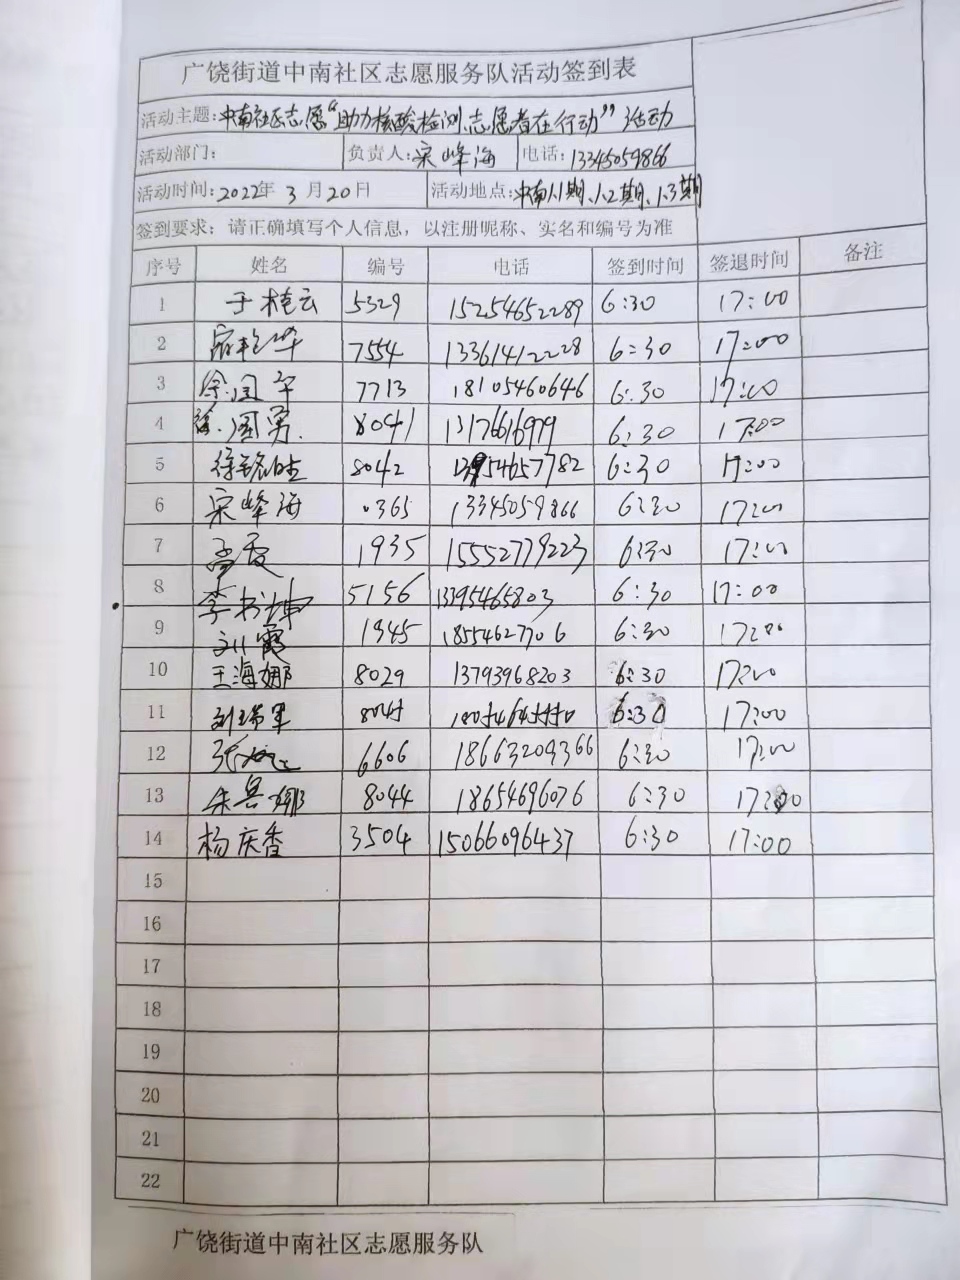 广饶街道中南社区志愿服务队活动签到表
活动主题：中南社区志愿“助力核酸检测、志愿者在行动”活动
活动部门： 负责人：宋峰海 电话：13345059866
活动时间：2022年3月20日 活动地点：中南1.1期、1.2期、1.3期
签到要求：请正确填写个人信息，以注册昵称、实名和编号为准
序号 姓名 编号 电话 签到时间 签退时间 备注
1 于桂云 5329 15254652289 6:30 17:00
2 7554 13361412228 6:30 17:00
3 徐国平 7713 18105460646 6:30 17:00
4 徐国勇 8041 13176616979 6:30 17:00
5 8042 13954657782 6:30 17:00
6 宋峰海 0365 13345059866 6:30 17:00
7 孟霞 1935 15552779223 6:30 17:00
8 李书坤 5156 13395465803 6:30 17:00
9 刘霞 1945 18554627706 6:30 17:00
10 王海娜 8029 13793968203 6:30 17:00
11 刘瑞军 8045 6:30 17:00
12 6606 18663209366 6:30 17:00
13 8044 18654696076 6:30 17:00
14 杨庆香 3504 15066096437 6:30 17:00
15
16
17
18
19
20
21
22
广饶街道中南社区志愿服务队